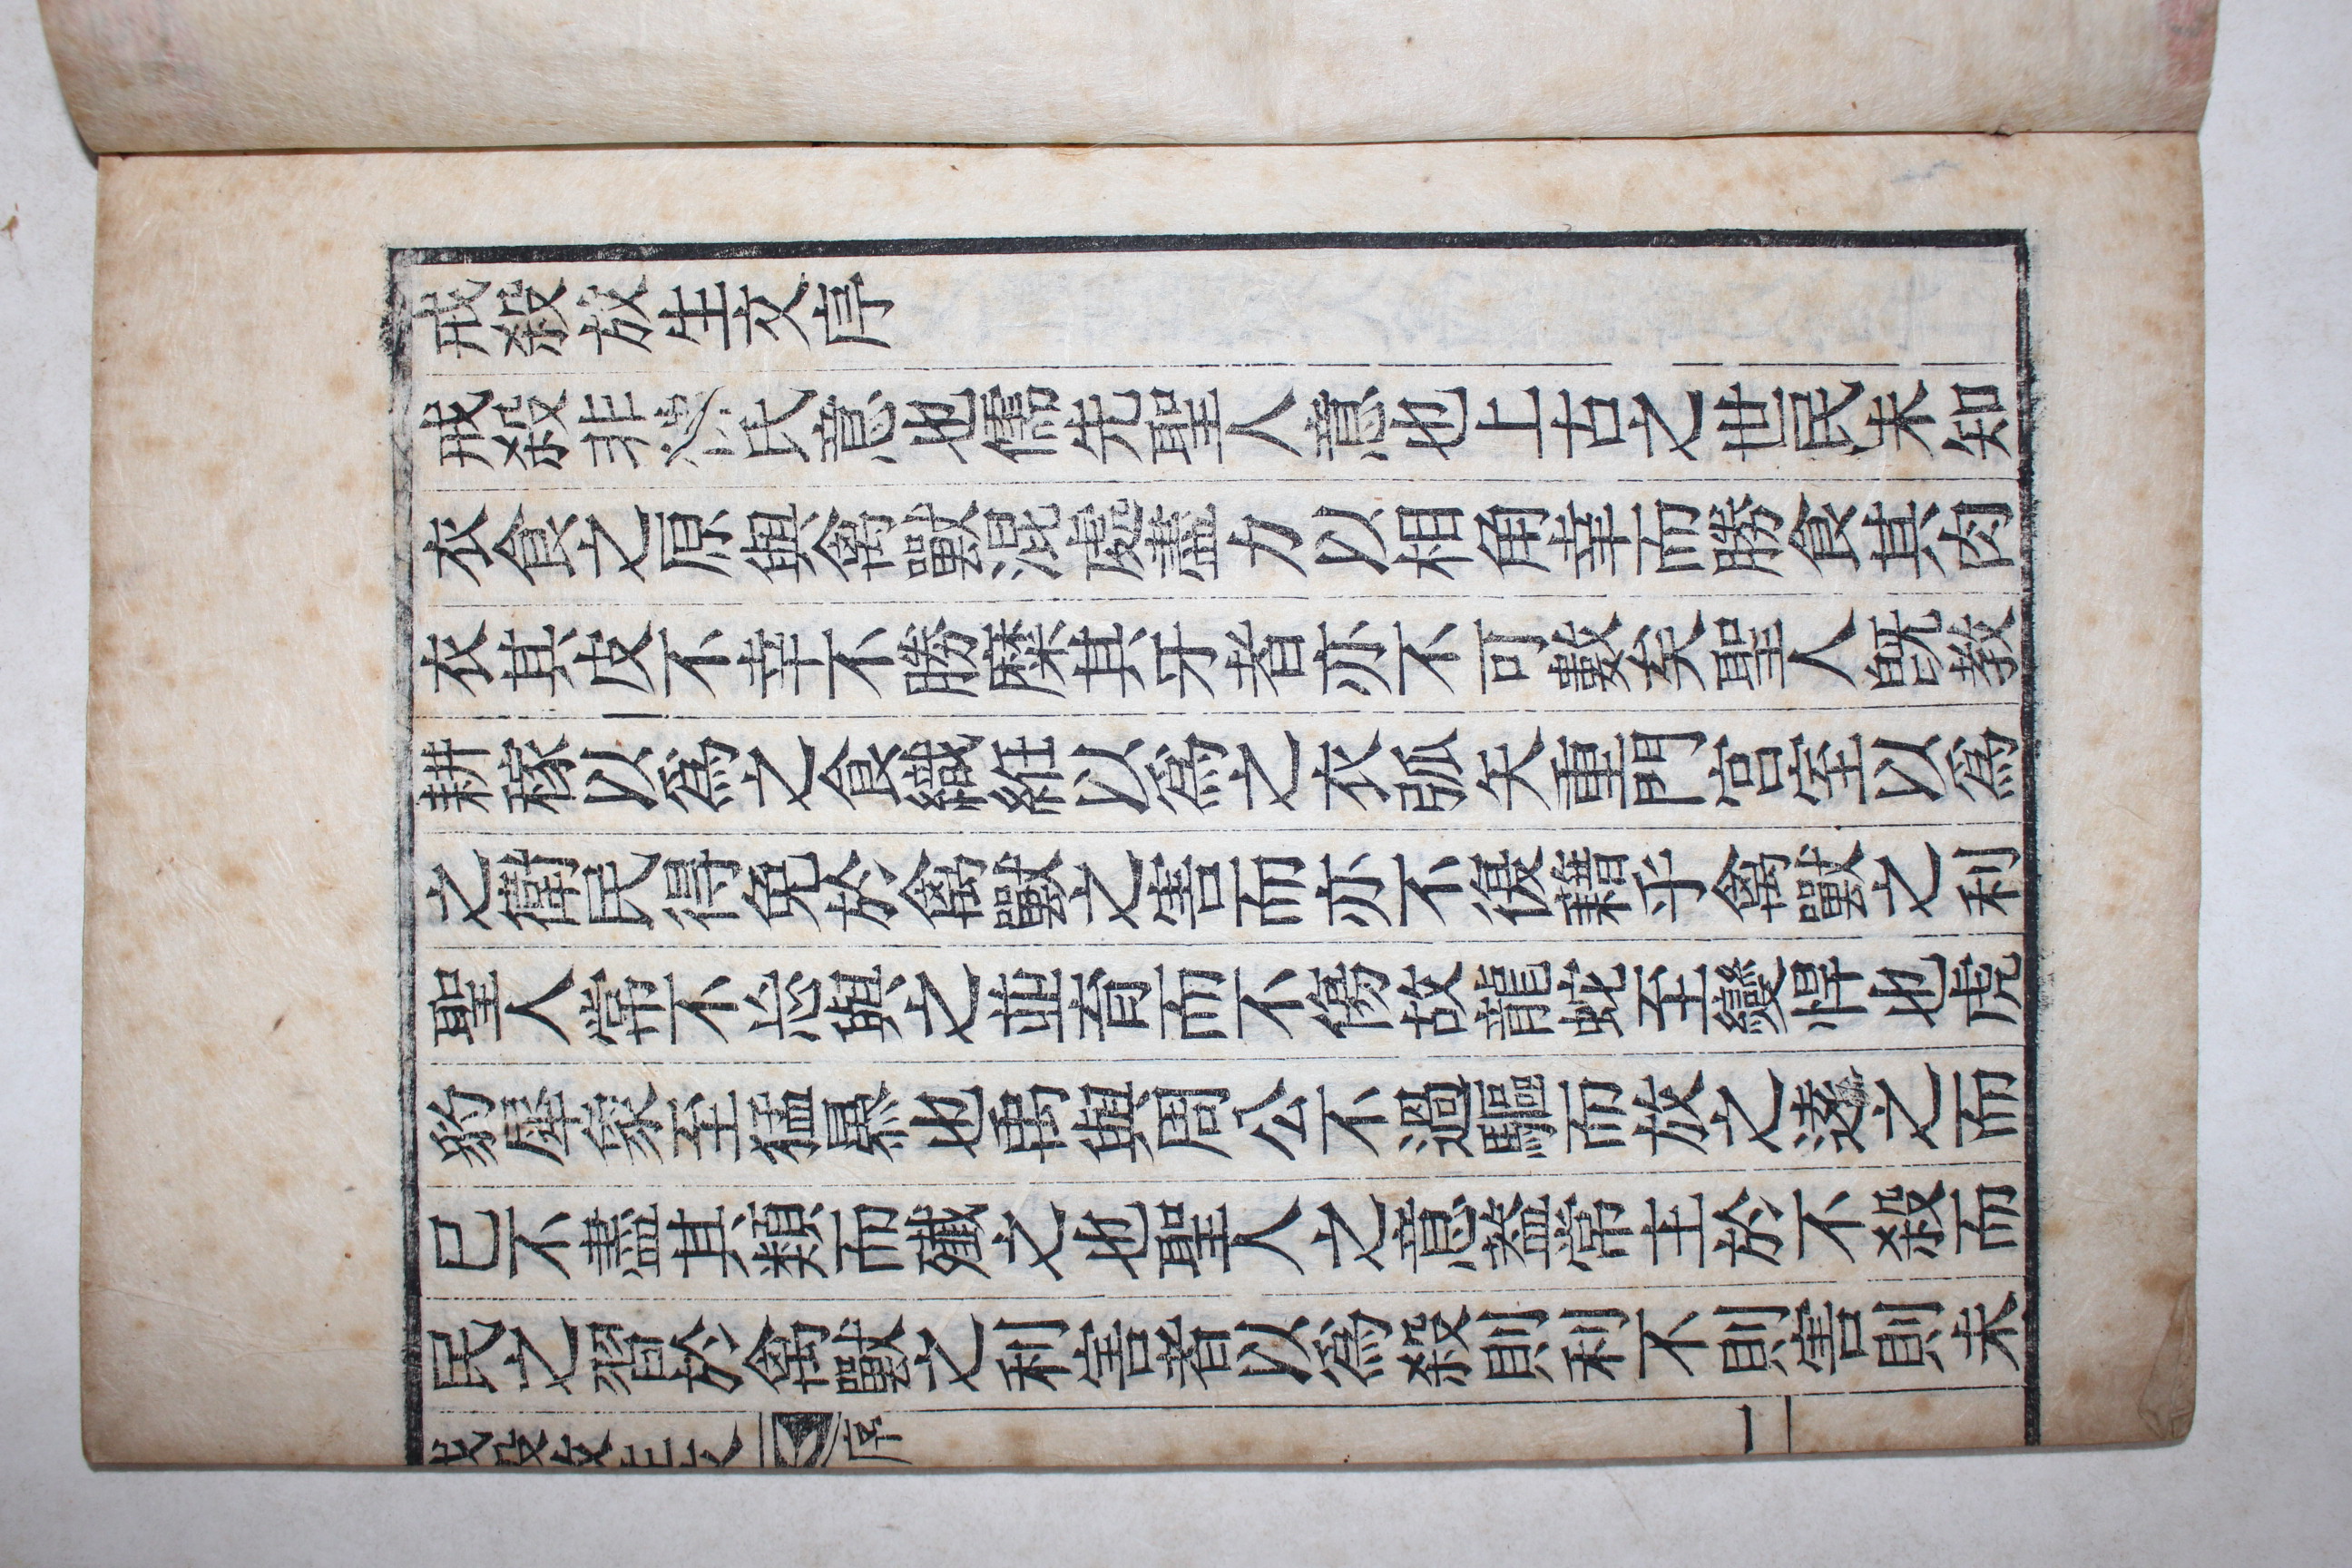 戒殺放生文序
戒殺非氏意也儒先聖人意也上古之世民未知
衣食之原與禽獸混處盡力以相角幸而勝食其肉
衣其皮不幸不勝糜其牙者亦不可數矣聖人既教
耕稼以爲之食織絍以爲之衣弧矢重門宮室以爲
之衛民得免於禽獸之害而亦不復藉乎禽獸之利
聖人常不忍與之並育而不傷故龍蛇至變悍也虎
豹犀象至猛暴也禹與周公不過驅而放之逺之而
已不盡其類而殲之也聖人之意蓋常主於不殺而
民之習於禽獸之利害者以爲殺則利不則害則未
戒殺放生文 序 一